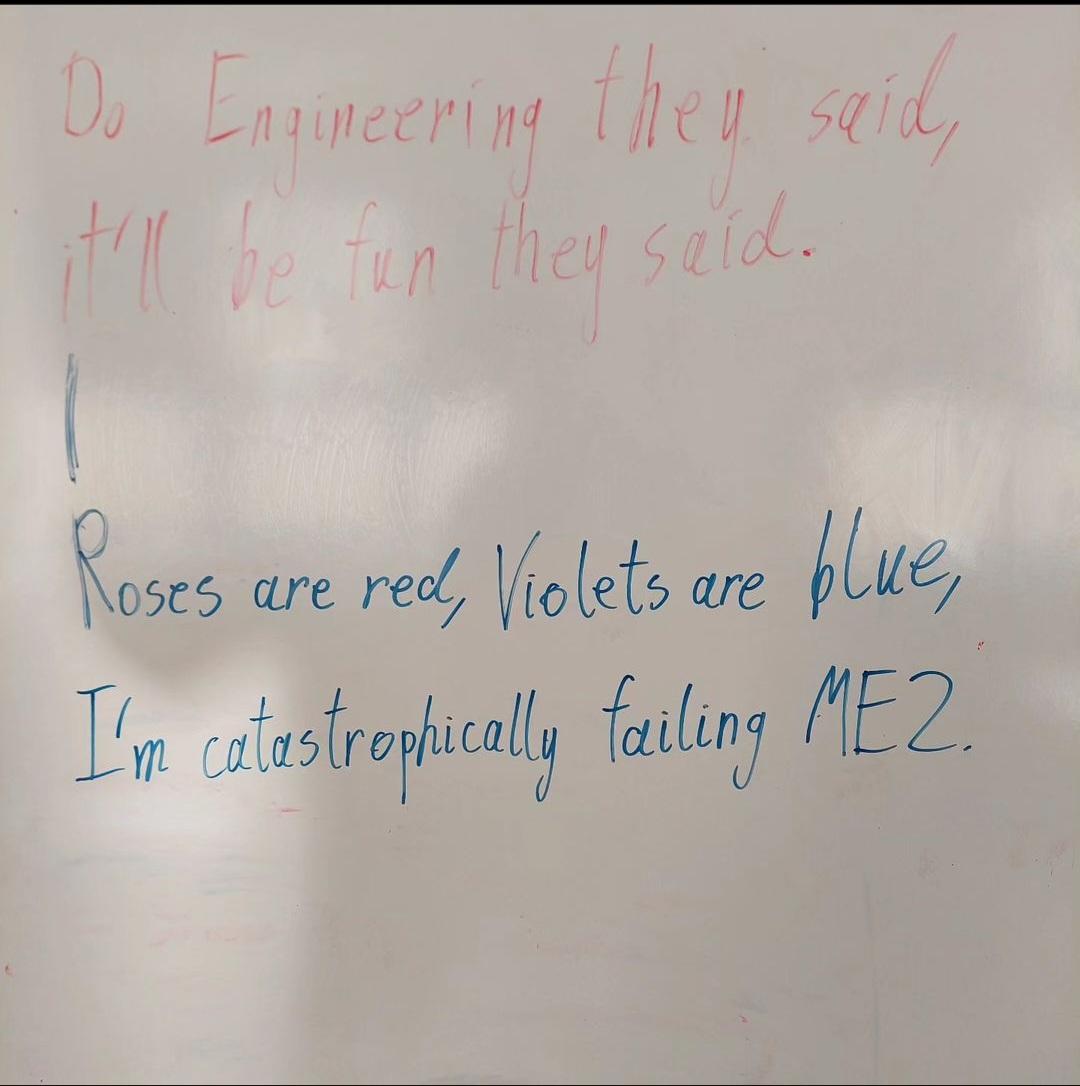 Do Engineering they said,
it'll be fun they said.
|
Roses are red, Violets are blue,
I'm catastrophically failing ME2.